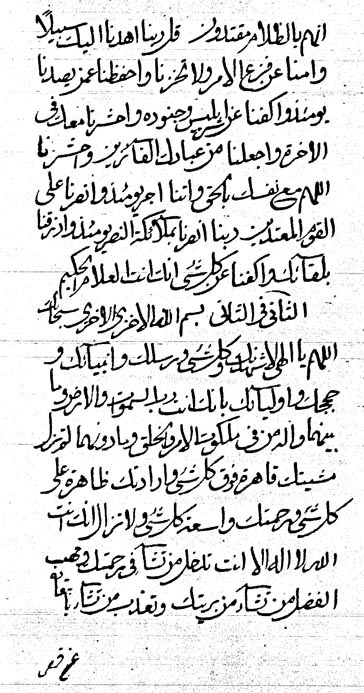 انهم بالظلام مقتدون قل ربنا اهدنا اليك سبيلا
وامنا عن فزع الامر ولا تخزنا واحفظنا عمن يصدنا
يومئذ واكفنا عن ابليس وجنوده واحشرنا معك في
الاخرة واجعلنا من عبادك الفائزين واحشرنا
اللهم مع نفسك بالحق واننا اجر يومئذ وانصرنا على
القوم المعتدين ربنا انصرنا بملائكة النصر يومئذ وارزقنا
بلقائك واكفنا عن كل شئ انك انت العلام الحكيم
الثاني في الثاني بسم الله الاخرى الاخرى سبحانك
اللهم يا الهي لاشهدنك وكل شئ ورسلك وانبيائك و
حججك واوليائك بانك انت رب السموات والارض وما
بينهما واله من في ملكوت الامر والخلق وما دونهما لم تزل
مشيتك قاهرة فوق كل شئ وارادتك ظاهرة على
كل شئ ورحمتك واسعة كل شئ ولا تزال انك انت
الله لا اله الا انت تدخل من تشاء في رحمتك وتهب
الفضل من تشاء من بريتك وتعذب من تشاء